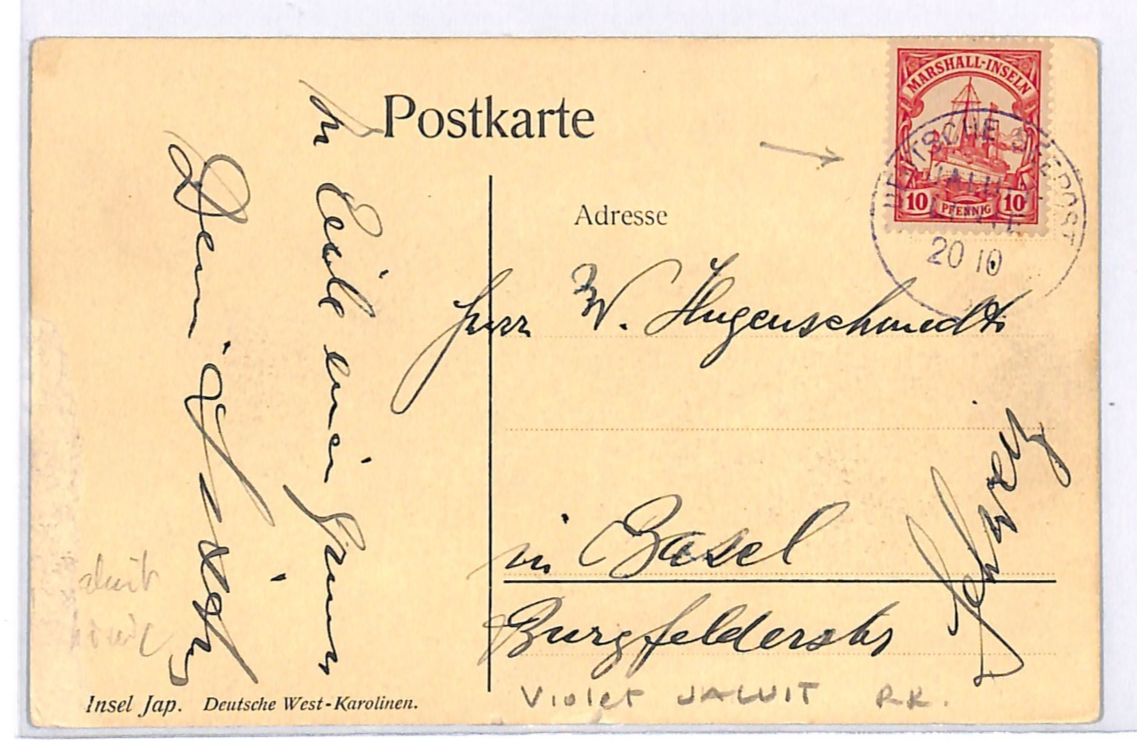 Postkarte
MARSHALL-INSELN
10 PFENNIG 10
DEUTSCHE SEEPOST
JALUIT
LINIE
20 10
Adresse
Herr W. Hugenschmidt
in Basel
Burgfelderstr
Schweiz
In Eile einen
Dein
Insel Jap. Deutsche West-Karolinen.
Violet JALUIT RR.